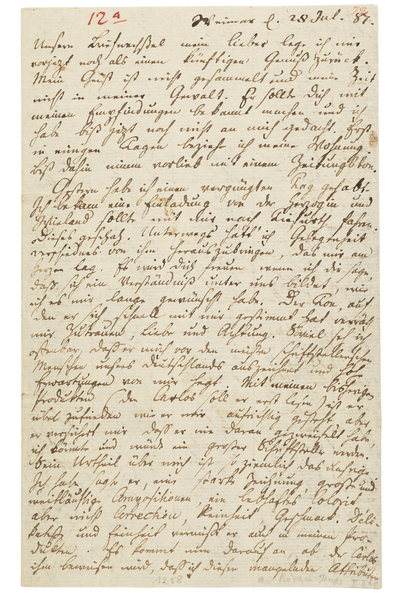 12a
Weimar d. 28 Jul. 87.
Unsern Briefwechsel mein lieber leg ich mir
vorjezt noch als einen künftigen Genuß zurück.
Mein Geist ist nicht gesammelt und meine Zeit
nicht in meiner Gewalt. Er sollte dich mit
meinen Empfindungen bekannt machen und ich
habe biß jezt noch nicht an mich gedacht. Erst
in einigen Tagen beziehe ich meine Wohnung
biß dahin nimm vorlieb mit einem Zeitungston.
Gestern habe ich einen vergnügten Tag gehabt.
Ich bekam eine Einladung von der Herzogin und
Wieland sollte mit mir nach Tiefurth fahren.
Dieses geschah. Unterwegs hatt' ich Gelegenheit
verschiednes von ihm herauszubringen, das mir am
Herzen lag. Es wird dich freuen, wenn ich dir sage
daß sich ein Verständniß unter uns bildet, wie
ich es mir lange gewünscht habe. Der Ton auf
den er sich schnell mit mir gestimmt hat verräth
mir Zutrauen, Liebe und Achtung. Soviel seh ich
offenbar, daß er mich vor den meisten schriftstellerischen
Menschen unsers Deutschlands auszeichnet und hohe
Erwartungen von mir hegt. Mit meinen bisherigen
Produkten (den Carlos soll er erst lesen) ist er
übel zufrieden wie er mir aufrichtig gesteht, aber
er versichert mir daß er nie daran gezweifelt habe
ich könnte und würde ein großer Schriftsteller werden.
Sein Urtheil über mich ist so ziemlich das
Ich habe sagt er, eine starke Zeichnung große und
weitläuftige Composizionen, ein lebhaftes Kolorit
aber nicht Correction, Reinheit Geschmack. Deli-
katesse und Feinheit vermißt er auch in meinen Pro-
dukten. Es kommt nun darauf an, ob der Carlos
ihm beweisen wird, daß ich diesen mangelnden Attributen